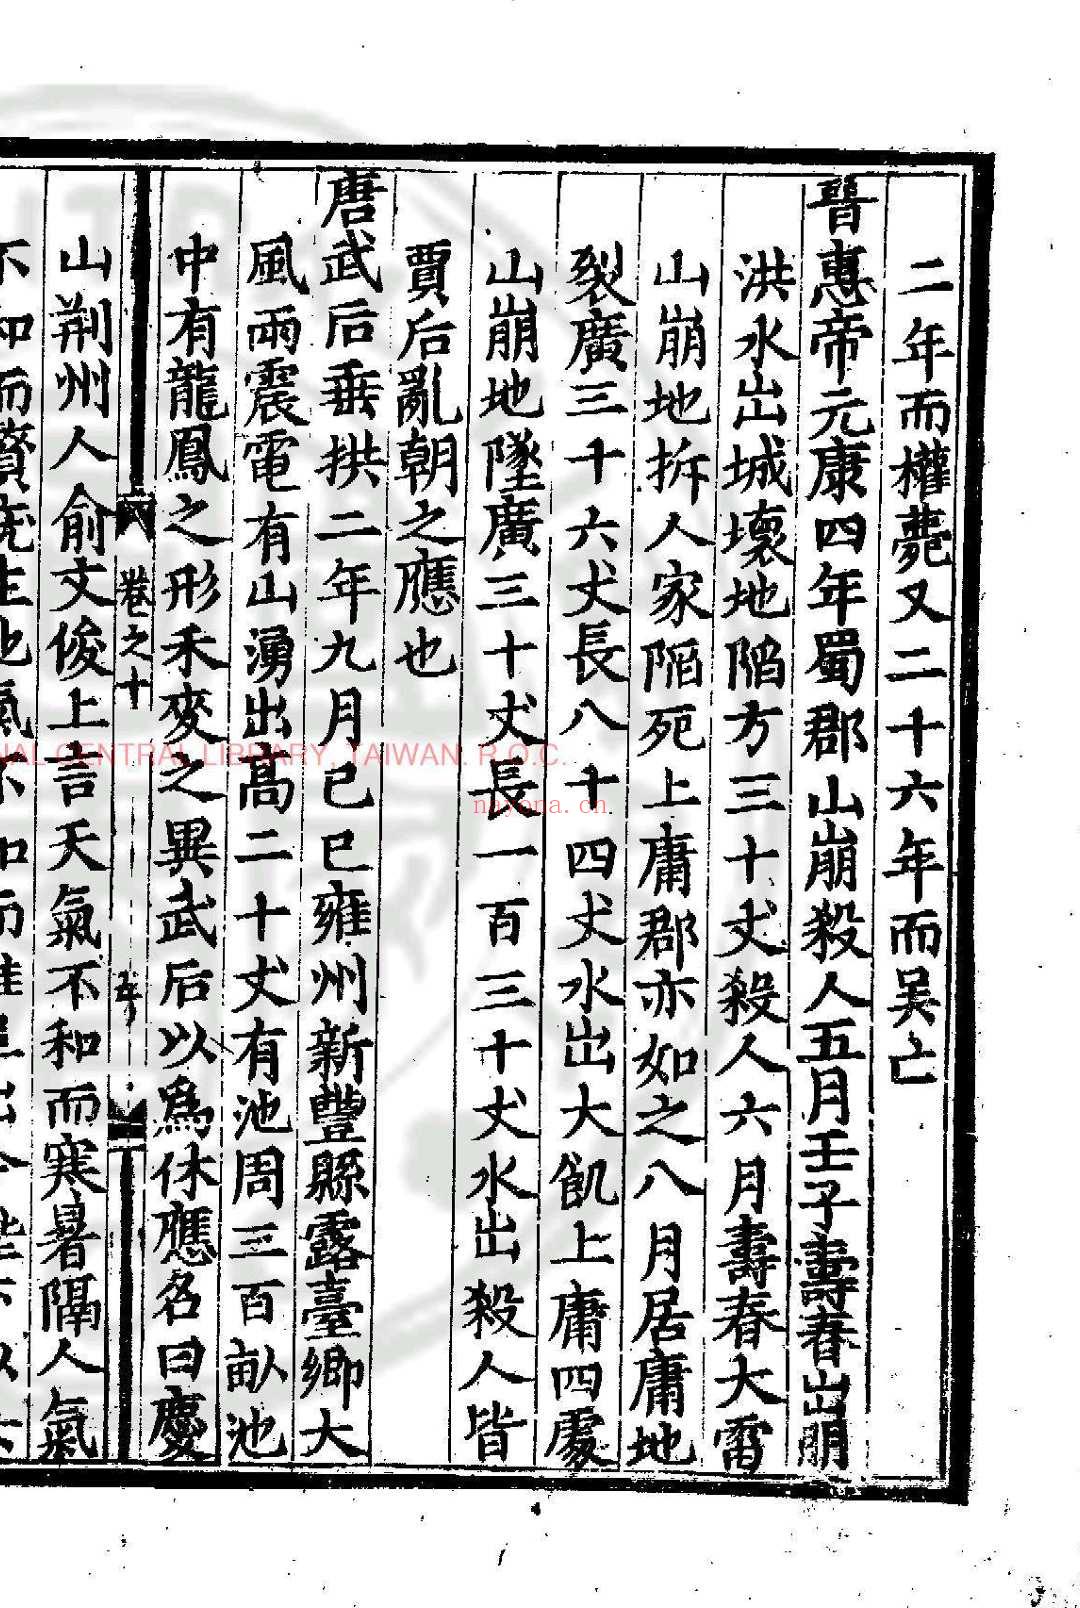 二年而權薨又二十六年而吳亡
晉惠帝元康四年蜀郡山崩殺人五月壬子壽春山崩
洪水出城壞地陷方三十丈殺人六月壽春大雷
山崩地拆人家陷死上庸郡亦如之八月居庸地
裂廣三十六丈長八十四丈水出大飢上庸四處
山崩地墜廣三十丈長一百三十丈水出殺人皆
賈后亂朝之應也
唐武后垂拱二年九月己巳雍州新豐縣露臺鄉大
風雨震電有山湧出高二十丈有池周三百畝池
中有龍鳳之形禾麥之異武后以爲休應名曰慶
卷之十
五
山荆州人俞文俊上言天氣不和而寒暑隔人氣
不和而贅疣生地氣不和而堆阜出今陛下以女
NAL CENTRAL LIBRARY, TAIWAN. R.O.C.
nayona.cn